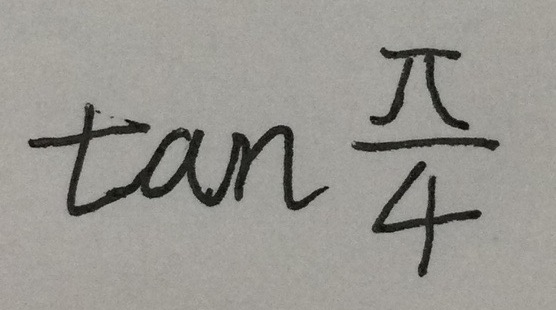 tan π/4